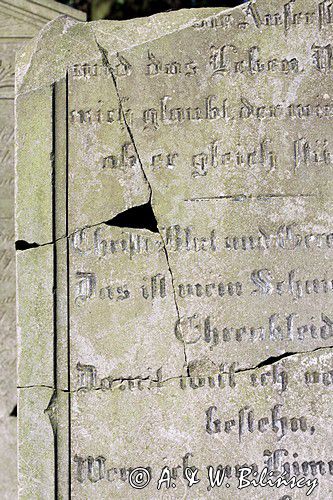 Auferst
und das Leben.
mich glaubt, der wi
ob er gleich stü
Christi Blut und Gere
Das ist mein Schmu
Ehrenkleid
Damit will ich vo
bestehn,
Wenn ich zum Himm
© A. & M. Bilinsey